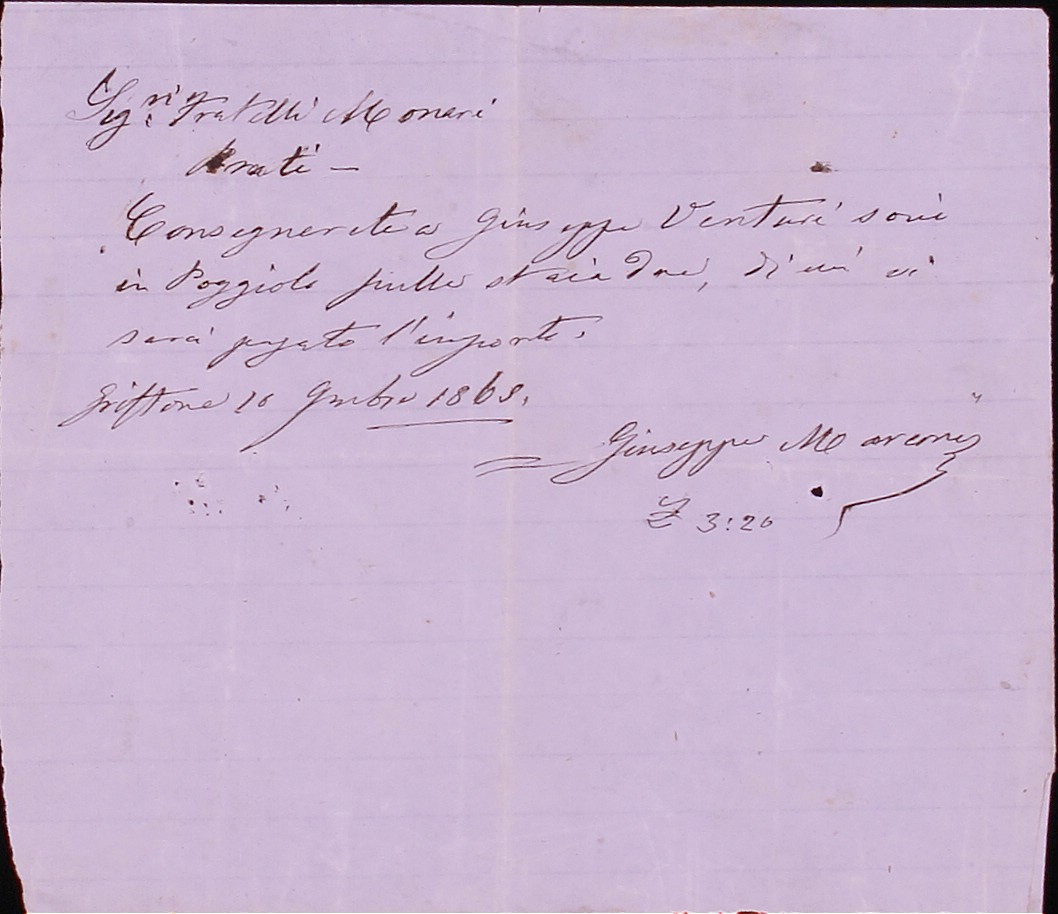 Sig.ri Fratelli Monari
Prati —
Consegnerete a Giuseppe Venturi
in Poggiolo staia due, di cui vi
sarà pagato l'importo.
Griffone 20 9mbre 1868.
Giuseppe Marconi
£ 3:20